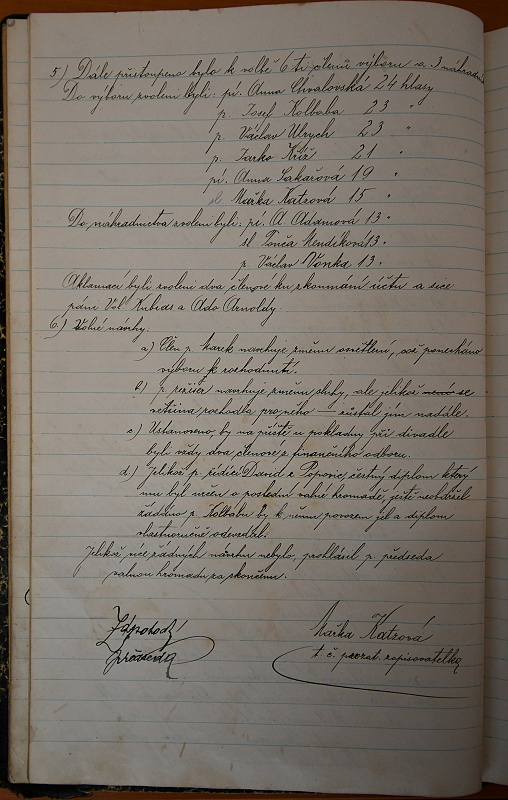 5) Dále přistoupeno bylo k volbě 6 ti členů výboru a 3 náhradníků
Do výboru zvoleni byli: pí. Anna Chvalovská 24 hlasy
p. Josef Kolbaba 23 "
p. Václav Ulrych 23 "
p. Jarko Kříž 21 "
pí. Anna Sakařová 19 "
sl. Mařka Katzová 15 "
Do náhradnictva zvoleni byli: pí. A. Adamová 13 "
sl. Tonča Mendíková 13 "
p. Václav Vonka 13 "
Aklamací byli zvoleni dva členové ku zkoumání účtů a sice
páni Vol. Kubias a Ado Arnoldy.
6.) Volné návrhy:
a) Člen p. Marek navrhuje změnu osvětlení, což ponecháno
výboru k rozhodnutí.
b) p. režisér navrhuje změnu sluhy, ale jelikož
většina rozhodla pro něho – zůstal jím nadále.
c) Ustanoveno, by na příště u pokladny při divadle
byli vždy dva členové z finančního odboru.
d.) Jelikož p. řídící David z Popovic, čestný diplom který
mu byl určen o poslední valné hromadě, ještě neobdržel
žádáno p. Kolbabu by k němu povozem jel a diplom
vlastnoručně odevzdal.
Jelikož více žádných návrhů nebylo, prohlásil p. předseda
valnou hromadu za skončenu.
Mařka Katzová
předseda
t. č. prozat. zapisovatelka